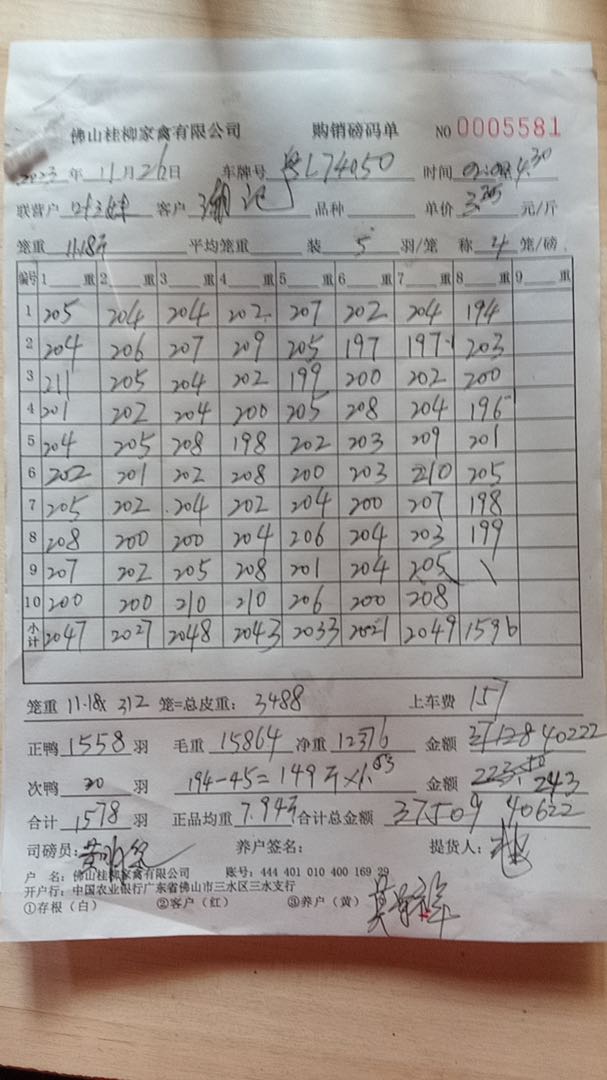 佛山桂柳家禽有限公司 购销磅码单 NO 0005581
2023 年 11 月 26 日 车牌号 粤L74050 时间 4.30
联营户 客户 潮记 品种 单价 元/斤
笼重 11.18斤 平均笼重 装 5 羽/笼 称 4 笼/磅
编号 1 重 2 重 3 重 4 重 5 重 6 重 7 重 8 重 9 重
1 205 204 204 202 207 202 204 194
2 204 206 207 209 205 197 197 203
3 211 205 204 202 199 200 202 200
4 201 202 204 200 205 208 204 196
5 204 205 208 198 202 203 209 201
6 202 201 202 208 200 203 210 205
7 205 202 204 202 204 200 207 198
8 208 200 200 204 206 204 203 199
9 207 202 205 208 201 204 205 \
10 200 200 210 210 206 200 208
小计 2047 2027 2048 2043 2033 2021 2049 1596
笼重 11.18x 312 笼=总皮重: 3488 上车费 157
正鸭 1558 羽 毛重 15864 净重 12376 金额 37128 40222
次鸭 20 羽 194-45=149斤x 金额 243
合计 1578 羽 正品均重 7.94斤 合计总金额 37509 40622
司磅员: 养户签名: 提货人:
户 名: 佛山桂柳家禽有限公司 账号: 444 401 010 400 169 29
开户行: 中国农业银行广东省佛山市三水区三水支行
①存根(白) ②客户(红) ③养户(黄)